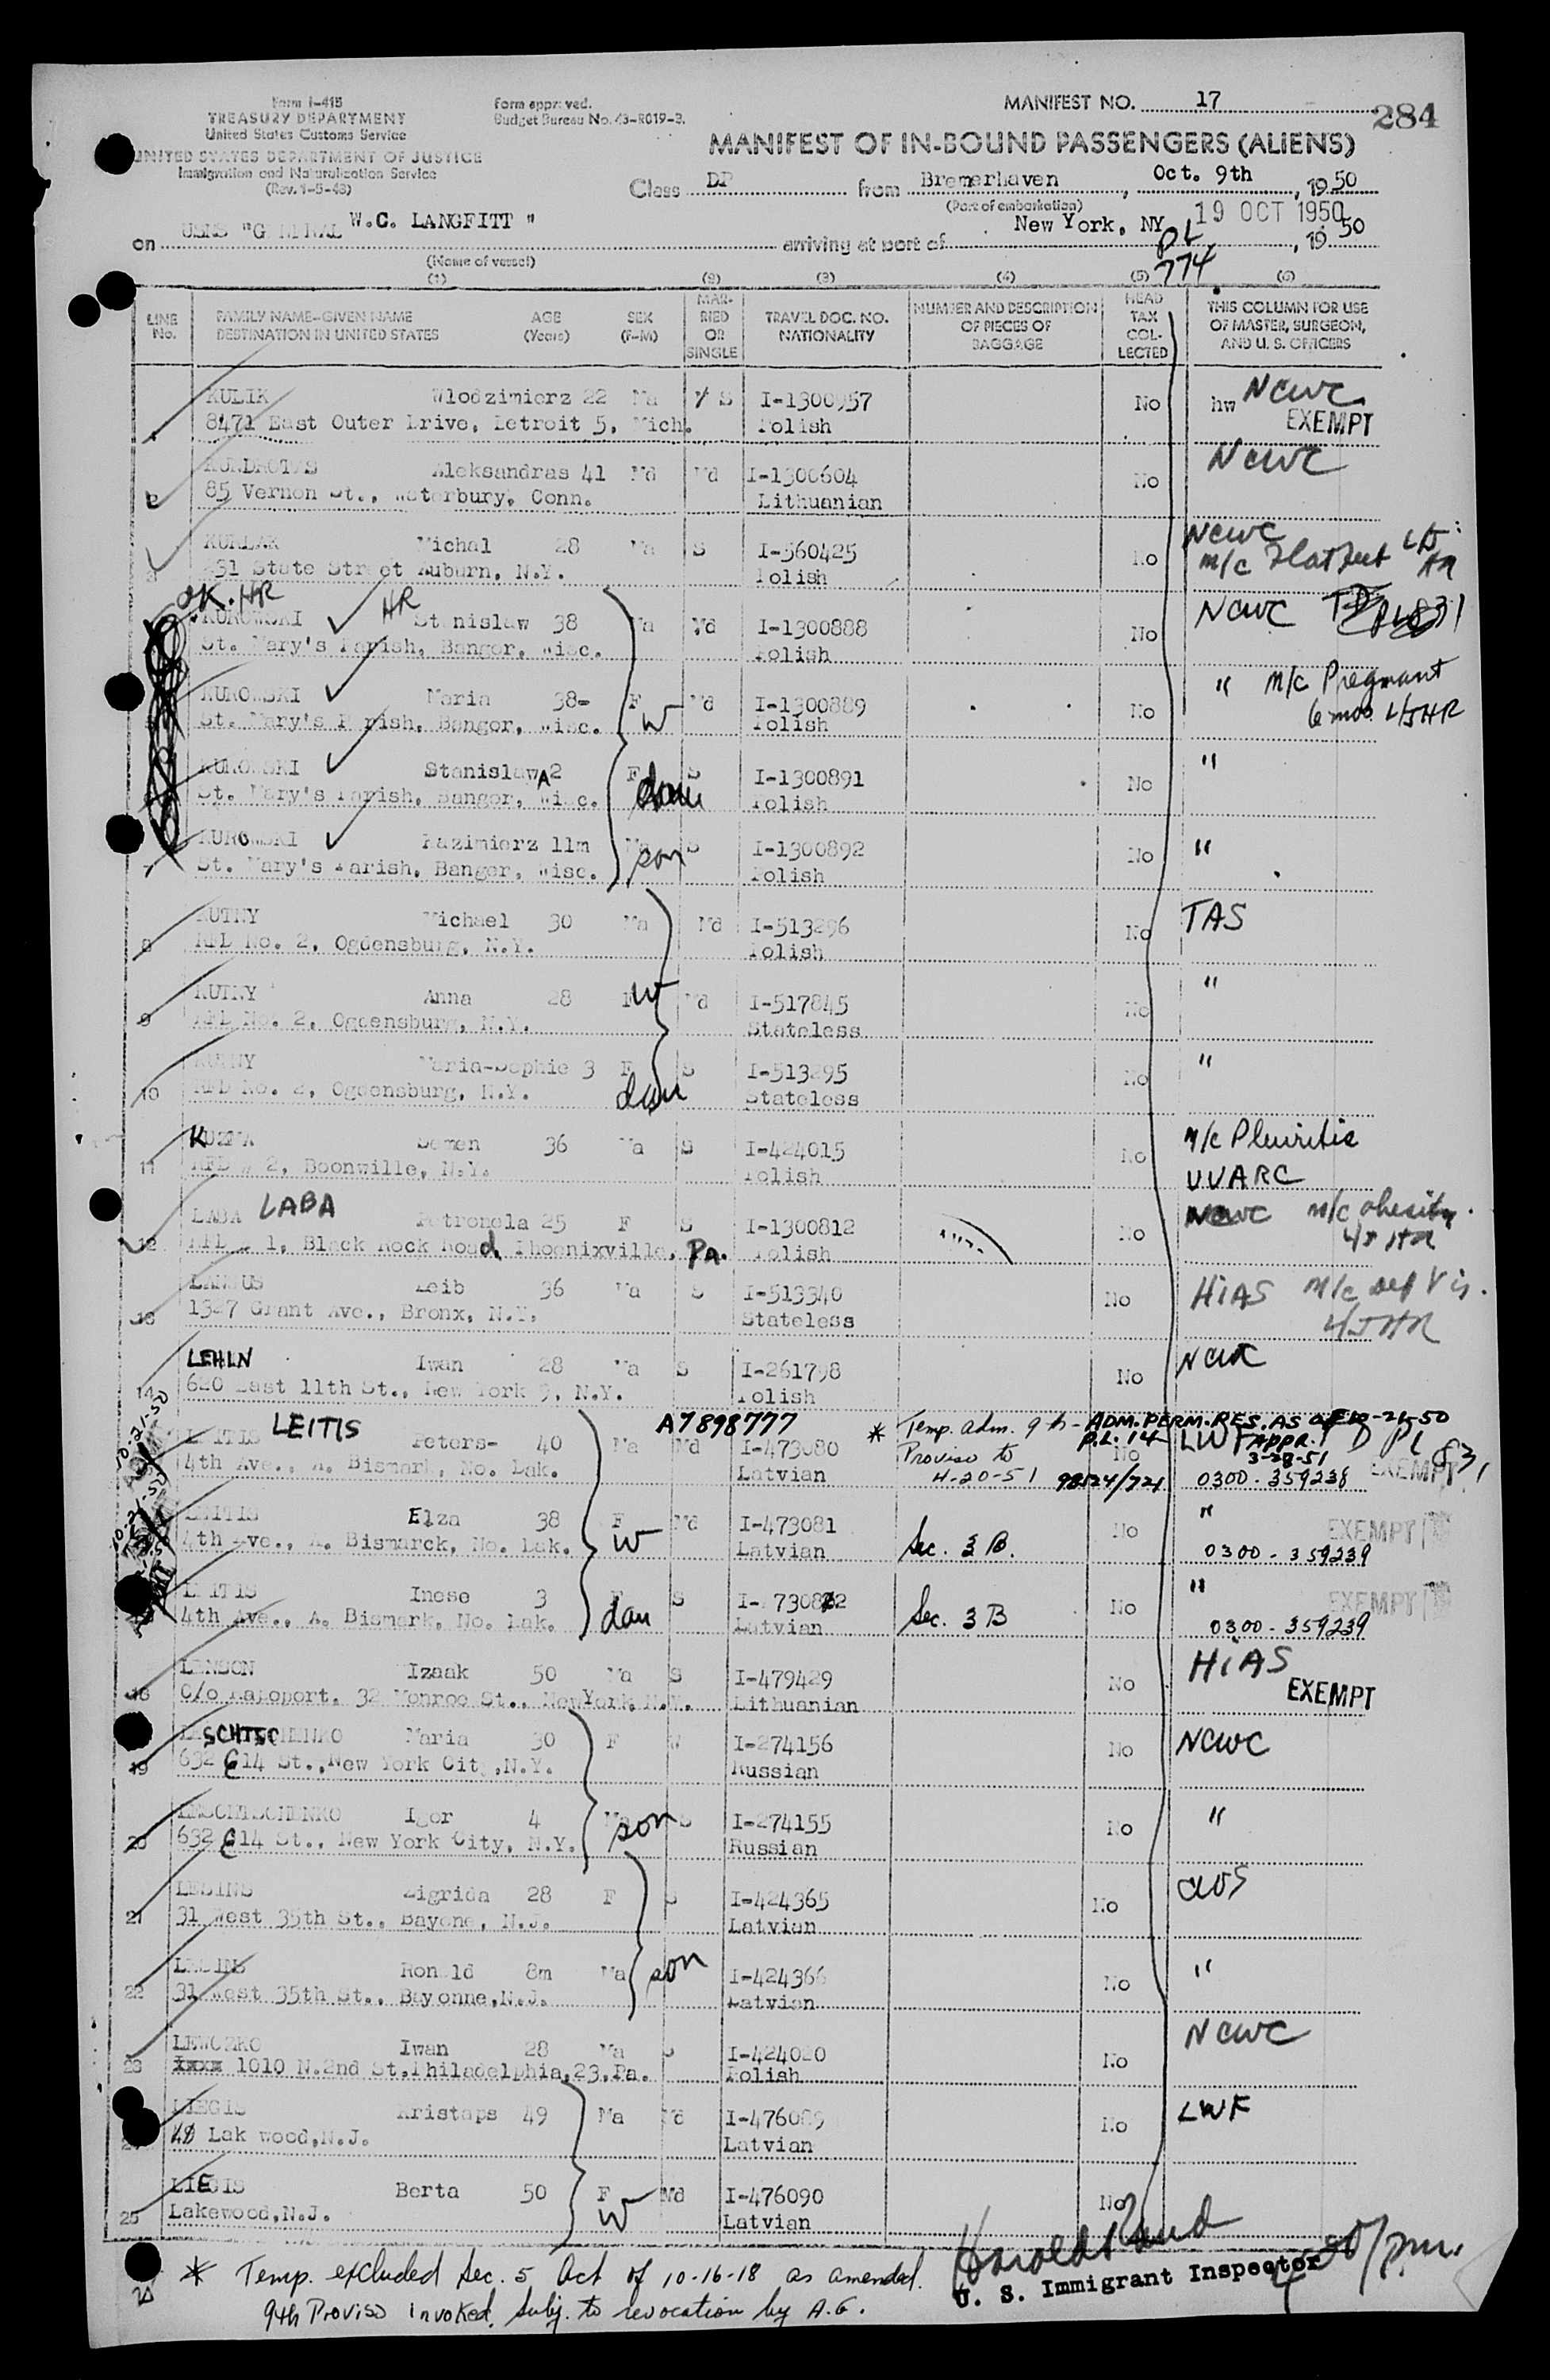 Form I-415
TREASURY DEPARTMENT
United States Customs Service
UNITED STATES DEPARTMENT OF JUSTICE
Immigration and Naturalization Service
(Rev. 1-5-48)
Form approved.
Budget Bureau No. 43-R019-3.
MANIFEST NO. 17
284
MANIFEST OF IN-BOUND PASSENGERS (ALIENS)
Class DP from Bremerhaven, Oct. 9th, 1950
(Port of embarkation)
on USNS "GENERAL W.C. LANGFITT" arriving at port of New York, NY 19 OCT 1950, 19 50
(Name of vessel)
PL 774
(1) (2) (3) (4) (5) (6)
LINE No. FAMILY NAME-GIVEN NAME DESTINATION IN UNITED STATES AGE (Years) SEX (F-M) MARRIED OR SINGLE TRAVEL DOC. NO. NATIONALITY NUMBER AND DESCRIPTION OF PIECES OF BAGGAGE HEAD TAX COLLECTED THIS COLUMN FOR USE OF MASTER, SURGEON, AND U. S. OFFICERS
KULIK Wlodzimierz 22 Ma S I-1300957 No hw NCWC
8471 East Outer Drive, Detroit 5, Mich. Polish EXEMPT
2 KUNDROTAS Aleksandras 41 Md Md I-1300604 No NCWC
85 Vernon St., Waterbury, Conn. Lithuanian
Michal 28 Ma S I-560425 No NCWC
State Street Auburn, N.Y. Polish m/c Flat feet
OK. HR
KUROWSKI HR Stanislaw 38 Ma Md I-1300888 No NCWC
St. Mary's Parish, Bangor, Wisc. Polish
KUROWSKI Maria 38- F Md I-1300889 No " m/c Pregnant
St. Mary's Parish, Bangor, Wisc. W Polish 6 mos L/JHR
KUROWSKI StanislawA 2 F S I-1300891 No "
St. Mary's Parish, Bangor, Wisc. dau Polish
7 KUROWSKI Kazimierz 11m Ma S I-1300892 No "
St. Mary's Parish, Bangor, Wisc. son Polish
8 KUTNY Michael 30 Ma Md I-513296 No TAS
RFD No. 2, Ogdensburg, N.Y. Polish
9 KUTNY Anna 28 F W Md I-517845 No "
RFD No. 2, Ogdensburg, N.Y. Stateless
10 KUTNY Maria-Sophie 3 F S I-513295 No "
RFD No. 2, Ogdensburg, N.Y. dau Stateless
11 KUZMA Semen 36 Ma S I-424015 No m/c Pleuritis
RFD # 2, Boonville, N.Y. Polish UUARC
12 LABA LABA Petronela 25 F S I-1300812 No NCWC m/c obesity
RFD # 1, Black Rock Road, Phoenixville, Pa. Polish
Leib 36 Ma S I-513340 No HIAS m/c def Vis.
1327 Grant Ave., Bronx, N.Y. Stateless L/JHR
14 LEHIN Iwan 28 Ma S I-261798 No NCWC
620 East 11th St., New York 9, N.Y. Polish
A7898777 * Temp. adm. 9th - ADM. PERM. RES. AS OF 10-21-50
LEITIS LEITIS Peters- 40 Ma Md I-473080 Proviso to P.L. 14 No LWF APPR. PL 831
4th Ave., A. Bismark, No. Dak. Latvian 4-20-51 3-28-51 0300-359238 EXEMPT
LEITIS Elza 38 F Md I-473081 No "
4th Ave., A. Bismarck, No. Dak. W Latvian Sec. 3 B. EXEMPT 0300-359239
LEITIS Inese 3 F S No "
4th Ave., A. Bismark, No. Dak. dau Latvian Sec. 3 B EXEMPT 0300-359239
18 LENSON Izaak 50 Ma S I-479429 No HIAS
C/o Rapoport, 32 Monroe St., NewYork, N.Y. Lithuanian EXEMPT
19 LESCHTSCHENKO Maria 30 F W I-274156 No NCWC
632 E 14 St., New York City, N.Y. Russian
20 LESCHTSCHENKO Igor 4 Ma S I-274155 No "
632 E 14 St., New York City, N.Y. son Russian
21 Zigrida 28 F S I-424365 No CWS
31 West 35th St., Bayone, N.J. Latvian
22 Ronald 8m Ma son I-424366 No "
31 West 35th St., Bayonne, N.J. Latvian
23 LEWCZKO Iwan 28 Ma S I-424020 No NCWC
xxxx 1010 N.2nd St.Philadelphia,23,Pa. Polish
LIEGIS Kristaps 49 Ma Md I-476089 No LWF
Lakewood, N.J. Latvian
25 LIEGIS Berta 50 F Md I-476090 No
Lakewood, N.J. W Latvian
Harold Rand
U. S. Immigrant Inspector
* Temp. excluded Sec. 5 Act of 10-16-18 as amended.
9th Proviso invoked. Subj. to revocation by A.G.